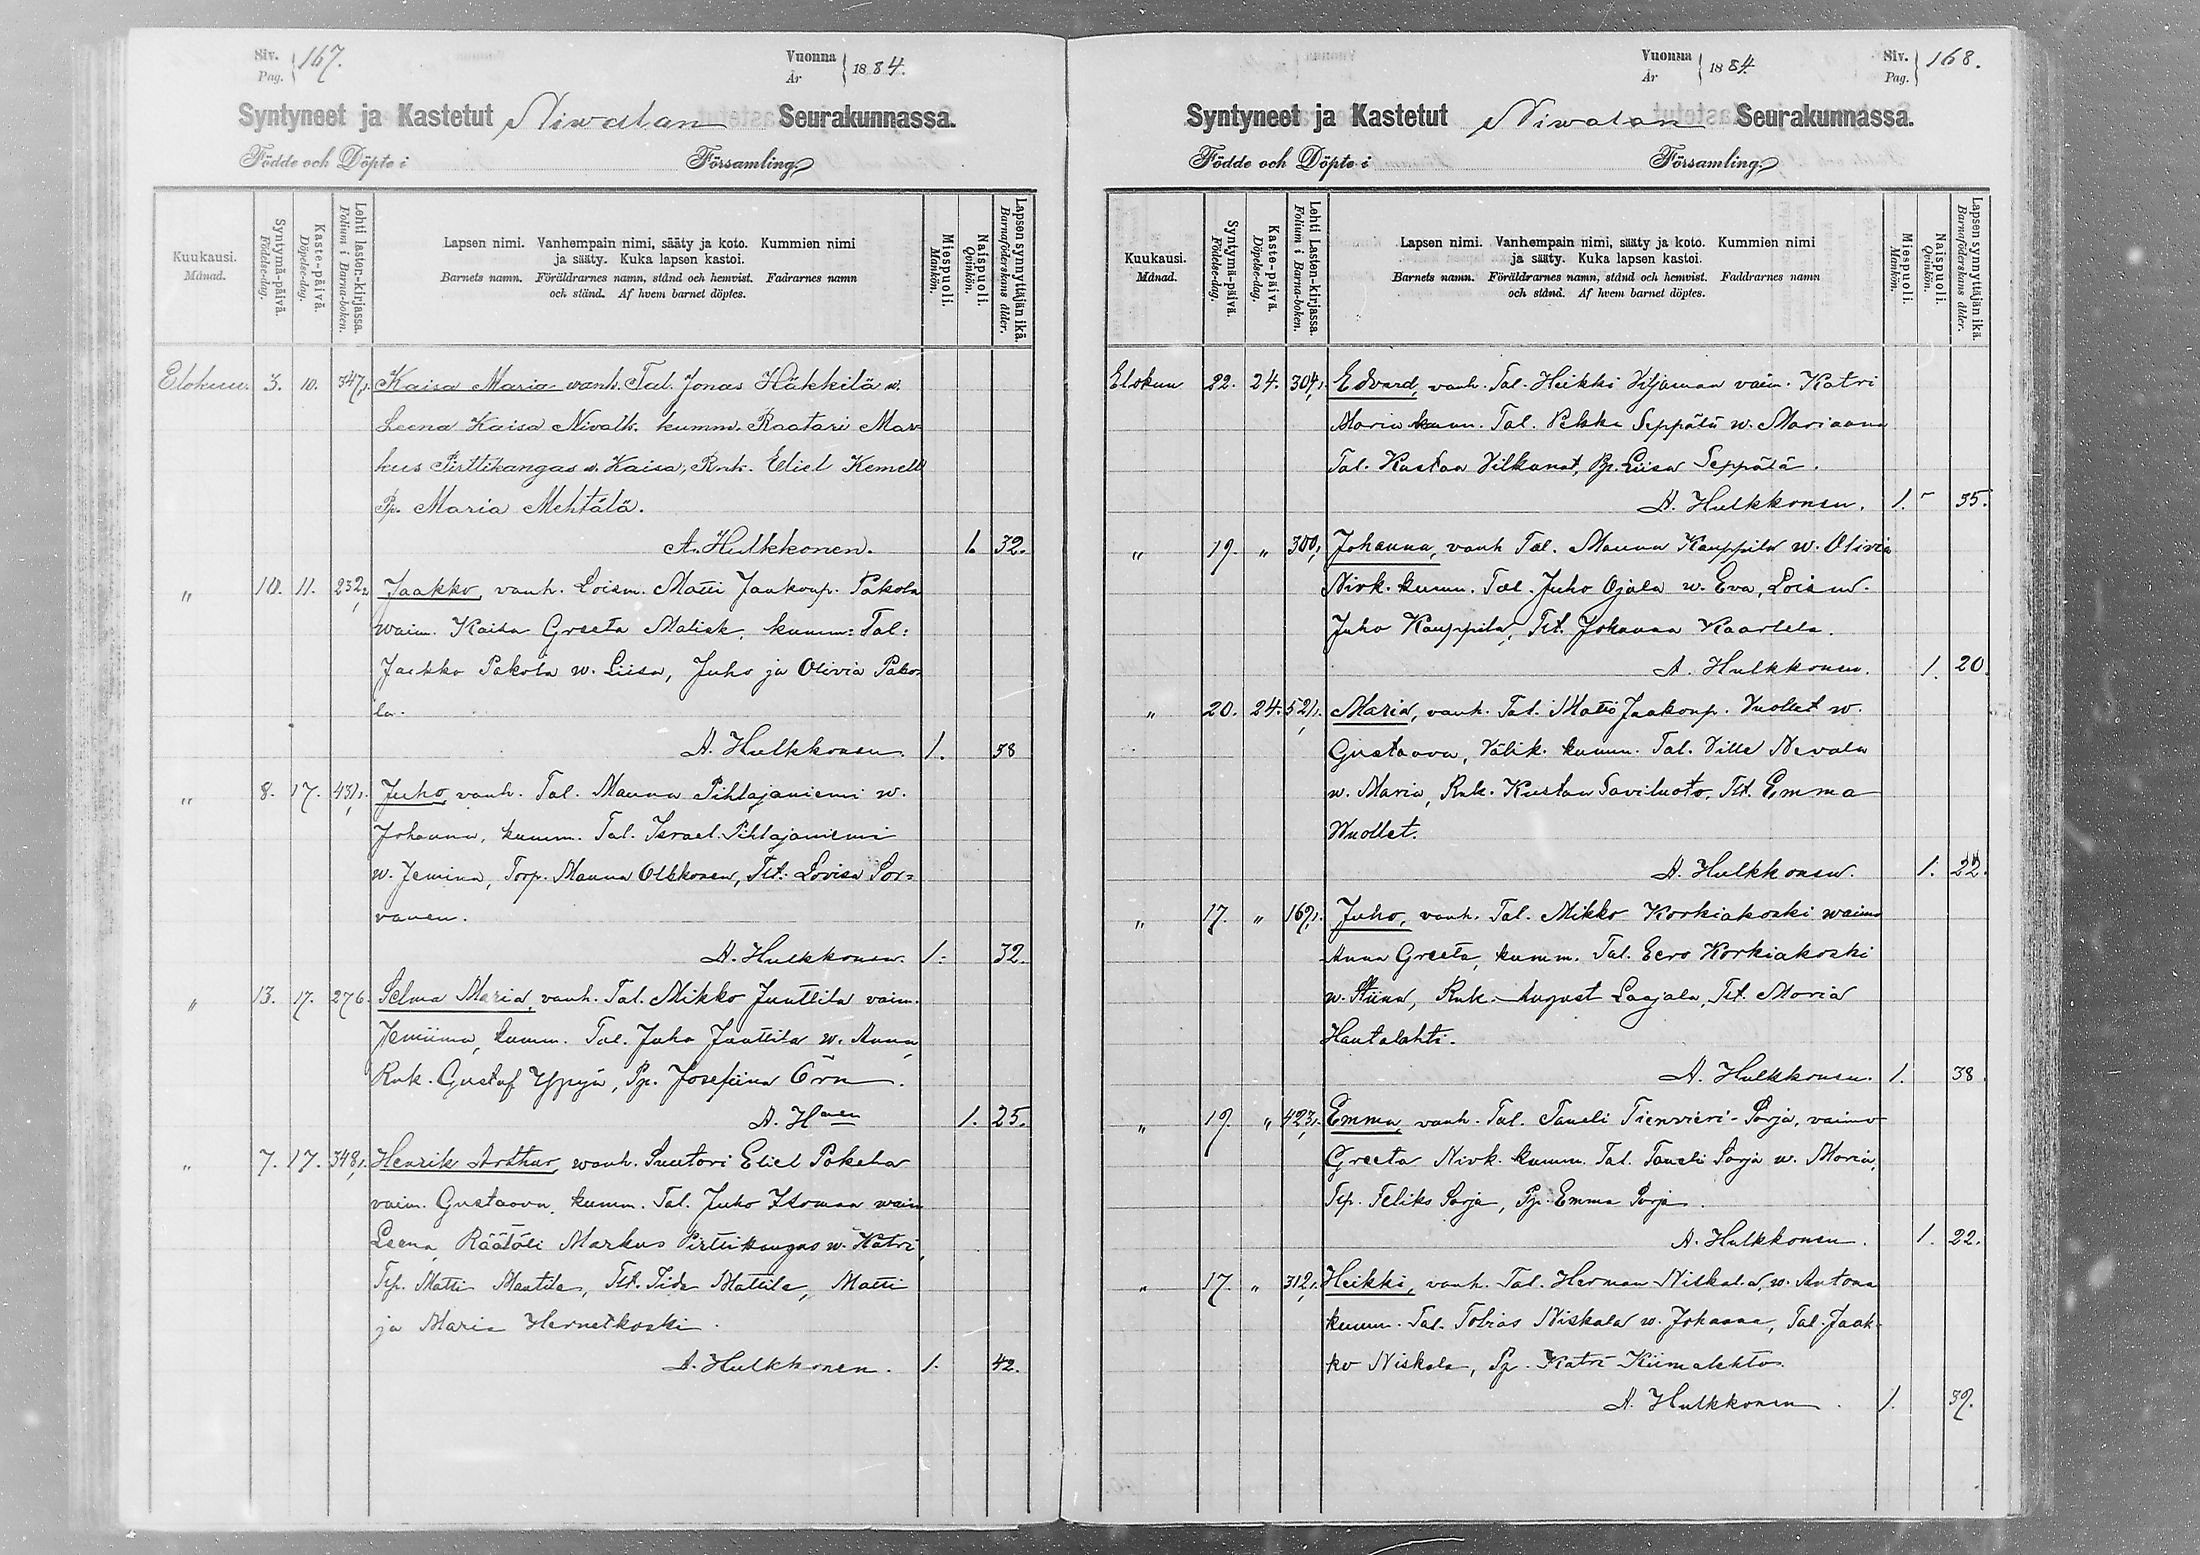 Siv. Pag. 167.
Vuonna År 1884.
Syntyneet ja Kastetut Niwalan Seurakunnassa.
Födde och Döpte i Församling.
Kuukausi. Månad.
Syntymä-päivä. Födelse-dag.
Kaste-päivä. Döpelse-dag.
Lehti lasten-kirjassa. Folium i Barna-boken.
Lapsen nimi. Vanhempain nimi, sääty ja koto. Kummien nimi
ja sääty. Kuka lapsen kastoi.
Barnets namn. Föräldrarnes namn, stånd och hemvist. Fadrarnes namn
och stånd. Af hvem barnet döptes.
Miespuoli. Mankön.
Naispuoli. Qvinkön.
Lapsen synnyttäjän ikä. Barnaföderskans ålder.
Elokuu. 3. 10. 347,1. Kaisa Maria vanh. Tal. Jonas Häkkilä w.
Leena Kaisa Nivalt. kumm. Raatari Mar-
kus Pirttikangas w. Kaisa, Rnk. Eliel Kemell
Pp. Maria Mehtälä.
A. Hulkkonen. 1. 32.
" 10. 11. 232,2 Jaakko, vanh. Loism. Matti Jaakonp. Pakola
waim. Kaisa Greeta Matisk. kumm: Tal:
Jaakko Pakola w. Liisa, Juho ja Olivia Pako-
la.
A. Hulkkonen. 1. 38
" 8. 17. 431,1. Juho, vanh. Tal. Mannu Pihlajaniemi w.
Johanna, kumm. Tal. Israel Pihlajaniemi
w. Jemina, Torp. Mannu Olkkonen, Tlt. Lovisa Sor=
vanen.
A. Hulkkonen. 1. 32.
" 13. 17. 276. Selma Maria, vanh. Tal. Mikko Junttila vaim.
Jemiima, kumm. Tal. Juho Junttila w. Anna,
Rnk. Gustaf Yppyä, Pp. Josefiina Örn.
A. Hnen 1. 25.
" 7. 17. 348,1. Henrik Arthur, wanh. Suutari Eliel Pokela
vaim. Gustaava, kumm. Tal. Juho Isomaa waim
Leena Räätäli Markus Pirttikangas w. Katri,
Tlp. Matti Mantila, Tlt. Iida Mattila, Matti
ja Maria Hernetkoski.
A. Hulkkonen. 1. 42.
Vuonna År 1884.
Siv. Pag. 168.
Syntyneet ja Kastetut Niwalan Seurakunnassa.
Födde och Döpte i Församling.
Kuukausi. Månad.
Syntymä-päivä. Födelse-dag.
Kaste-päivä. Döpelse-dag.
Lehti Lasten-kirjassa. Folium i Barna-boken.
Lapsen nimi. Vanhempain nimi, sääty ja koto. Kummien nimi
ja sääty. Kuka lapsen kastoi.
Barnets namn. Föräldrarnes namn, stånd och hemvist. Faddrarnes namn
och stånd. Af hvem barnet döptes.
Miespuoli. Mankön.
Naispuoli. Qvinkön.
Lapsen synnyttäjän ikä. Barnaföderskans ålder.
Elokuu 22. 24. 304,1. Edvard, vanh. Tal. Heikki Viljamaa vaim. Katri
Maria kumm. Tal. Pekka Seppälä w. Mariaana
Tal. Kustaa Vilkuna, Pp. Liisa Seppälä.
A. Hulkkonen. 1. - 35.
" 19. " 300,1 Johanna, vanh. Tal. Mannu Kauppila w. Olivia
Nivk. kumm. Tal. Juho Ojala w. Eva, Loism.
Juho Kauppila, Tlt. Johanna Kaartela.
A. Hulkkonen. 1. 20.
" 20. 24. 521,1. Maria, vanh. Tal. Matti Jaakonp. Vuollet w.
Gustaava, Välik. kumm. Tal. Ville Nevala
w. Maria, Rnk. Kustaa Saviluoto, Tlt. Emma
Wuollet.
A. Hulkkonen. 1. 22.
" 17. " 169,1. Juho, vanh. Tal. Mikko Korkiakoski waimo
Anna Greeta, kumm. Tal. Eero Korkiakoski
w. Stiina, Rnk. August Laajala, Tlt. Maria
Hautalahti.
A. Hulkkonen. 1. 38.
" 19. " 423,1. Emma, vanh. Tal. Taneli Tienvieri-Sarja, vaimo
Greeta Nivk. kumm. Tal. Taneli Sarja w. Maria,
Tlp. Feliks Sarja, Pp. Emma Sarja.
A. Hulkkonen. 1. 22.
" 17. " 312,1. Heikki, vanh. Tal. Herman Niskala, w. Antona
kumm. Tal. Tobias Niskala w. Johanna, Tal. Jaak-
ko Niskala, Pp. Katri Kiimalehto.
A. Hulkkonen. 1. 39.